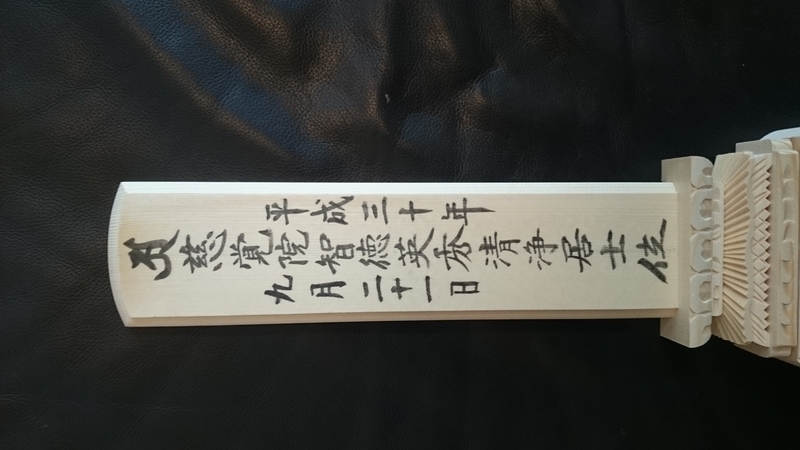 平成三十年
慈覚院智徳英秀清浄居士位
九月二十一日